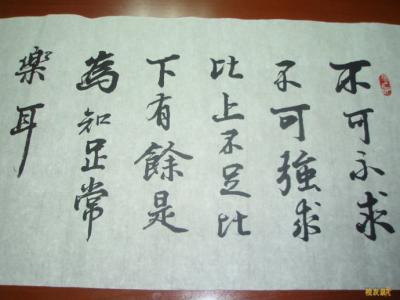 不可不求
不可強求
比上不足比
下有餘是
為知足常
樂耳